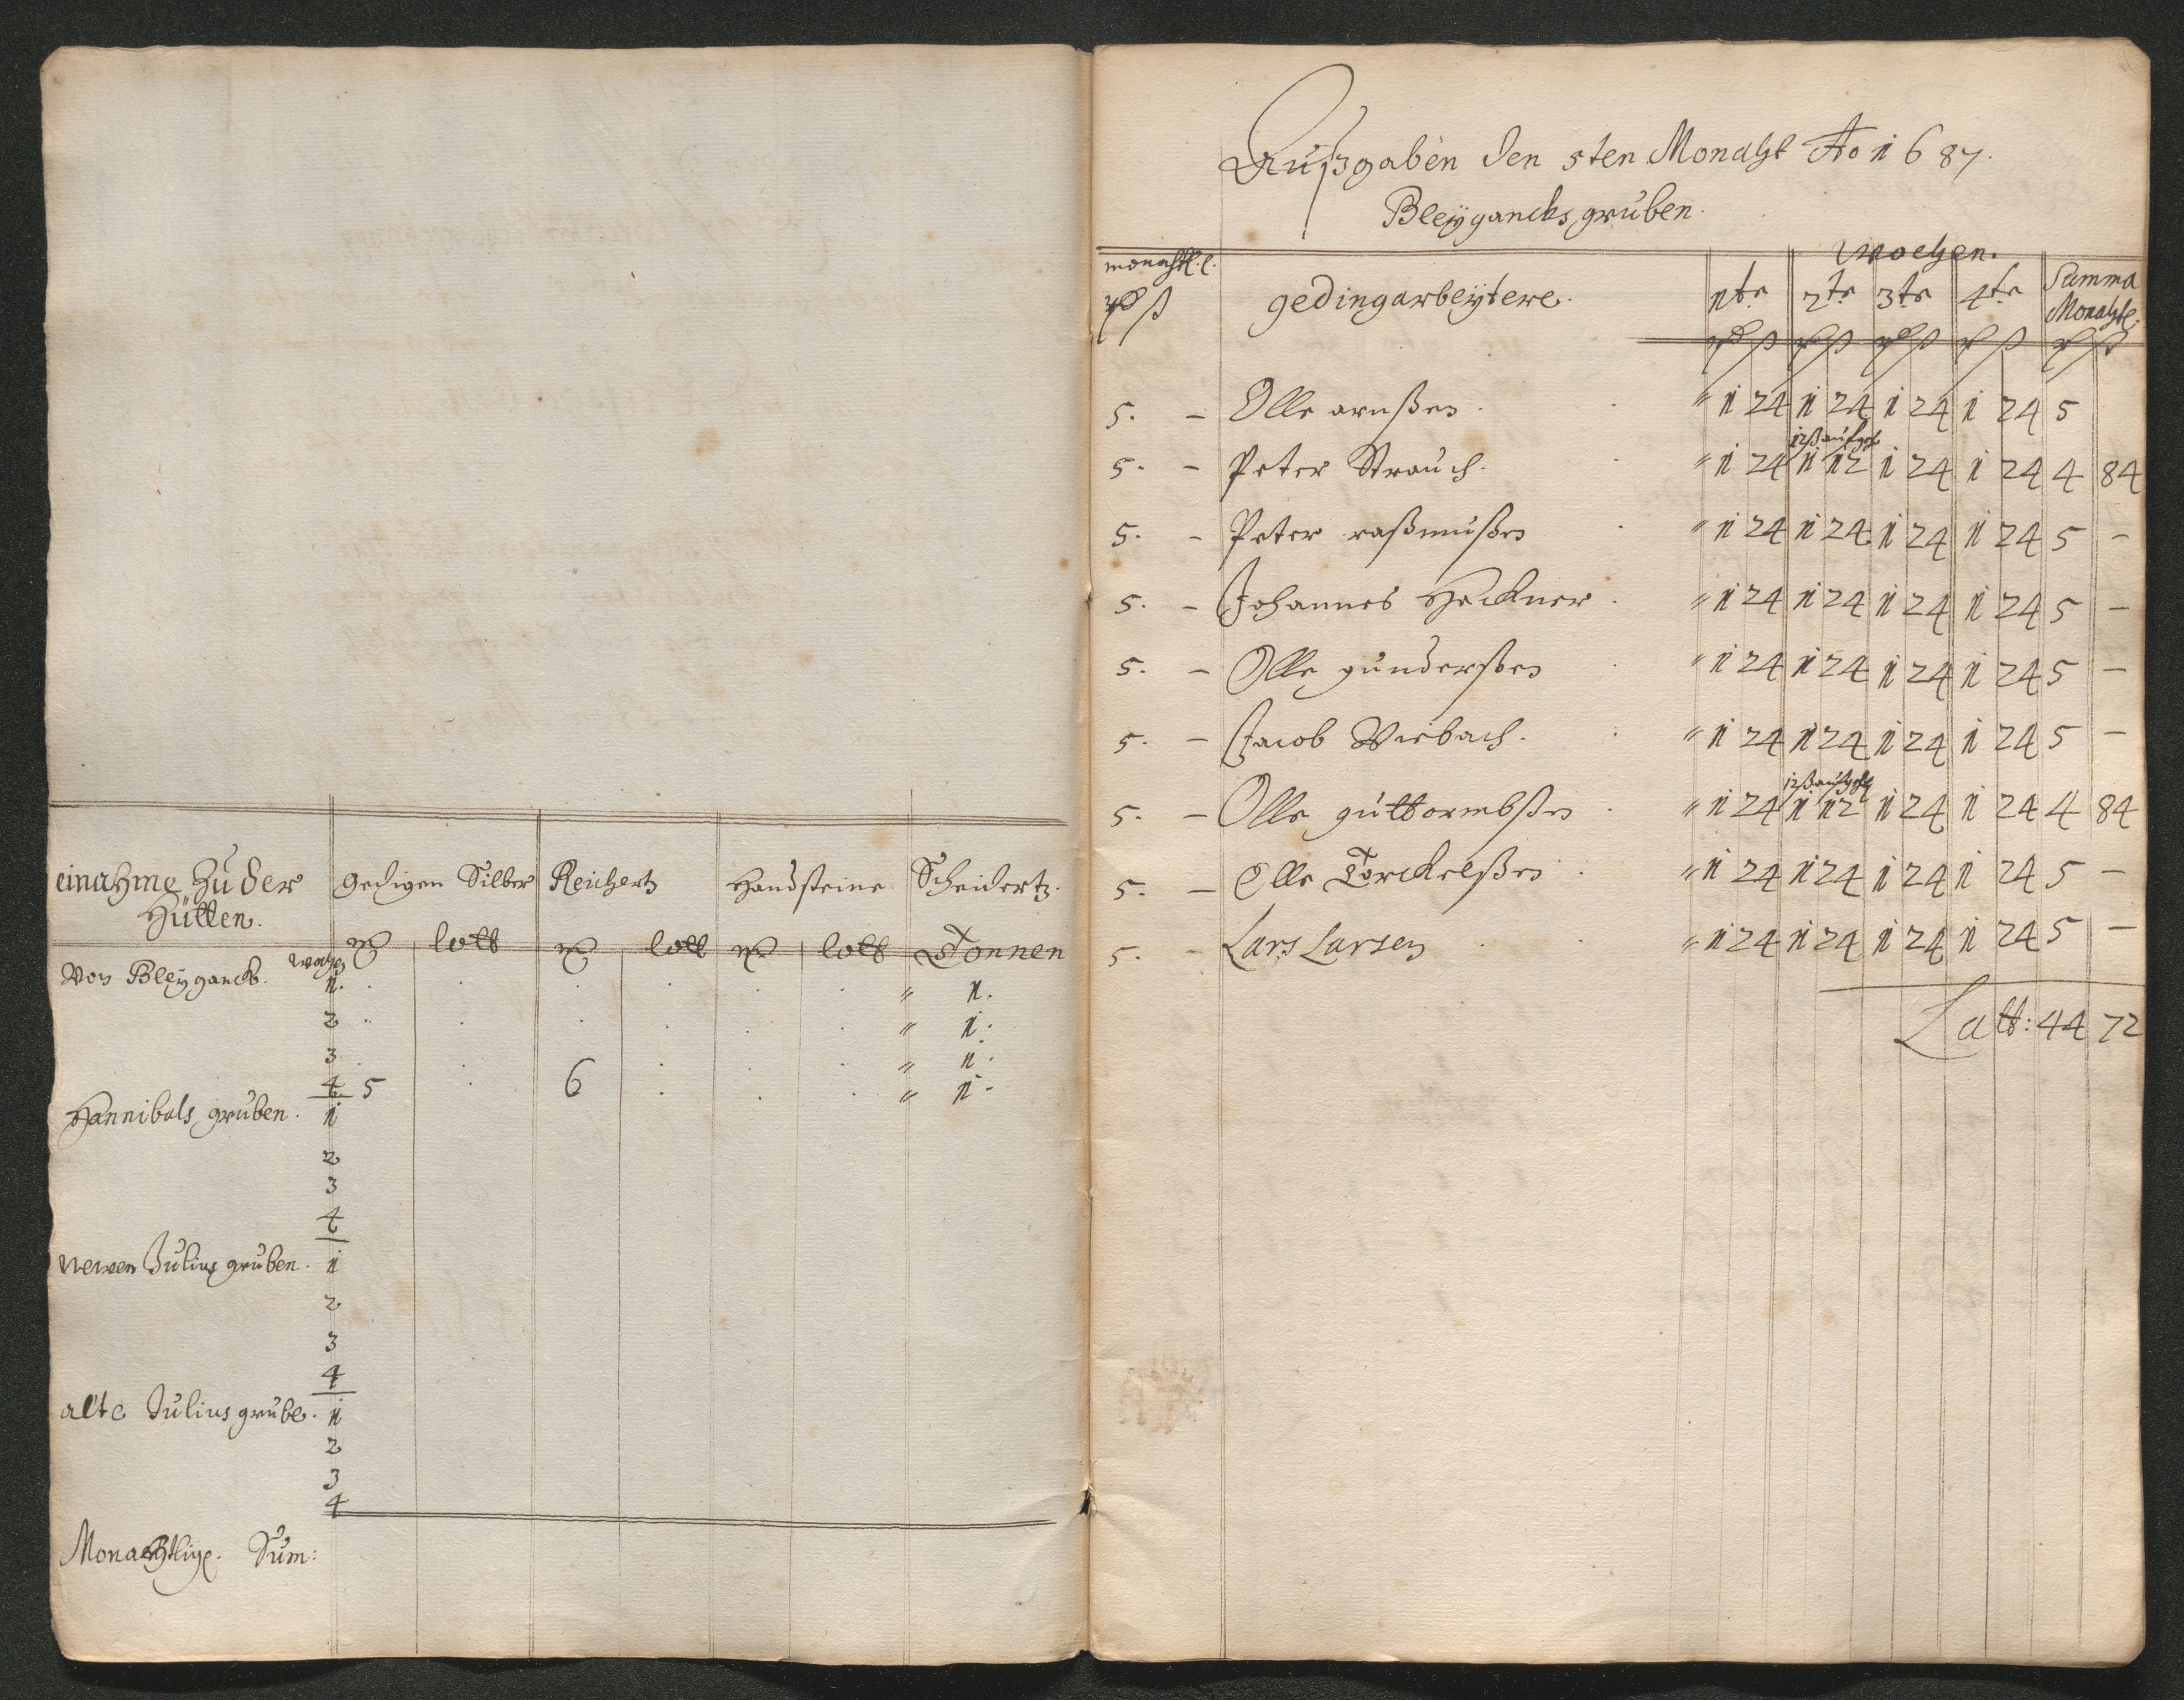 einahme Zu der Hütten.
gedigen Silber
Reichertz
Handsteine
Scheidertz.
lott
lott
lott
Tonnen
Von Bleygancks. wochen 1. " 1.
2 " 1.
3 " 1.
4 5 6 " 1.
Hannibals gruben. 1
2
3
4
Newen Julius gruben. 1
2
3
4
alte Julius grube. 1
2
3
4
Monachtlige. Sum:
Außgaben den 5ten Monaht Ao 1687.
Bleÿgancks gruben.
monahtl.
gedingarbeÿtere.
Wochen.
1te 2te 3te 4te
Summa Monahtl:
5. - Olle arnßen. " 1 24 1 24 1 24 1 24 5
12ß aufgeh
5. - Peter Strauch. " 1 24 1 12 1 24 1 24 4 84
5. - Peter raßmußen " 1 24 1 24 1 24 1 24 5 -
5. - Johannes Heckner. " 1 24 1 24 1 24 1 24 5 -
5. - Olle gunderßen " 1 24 1 24 1 24 1 24 5 -
5. - Jacob Viebach. " 1 24 1 24 1 24 1 24 5 -
12ß aufgeh
5. - Olle guttormbßen " 1 24 1 12 1 24 1 24 4 84
5. - Olle Torckelßen " 1 24 1 24 1 24 1 24 5 -
5. - Lars Larsen " 1 24 1 24 1 24 1 24 5 -
Latt: 44 72